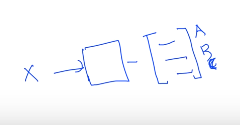 X
A
B
C